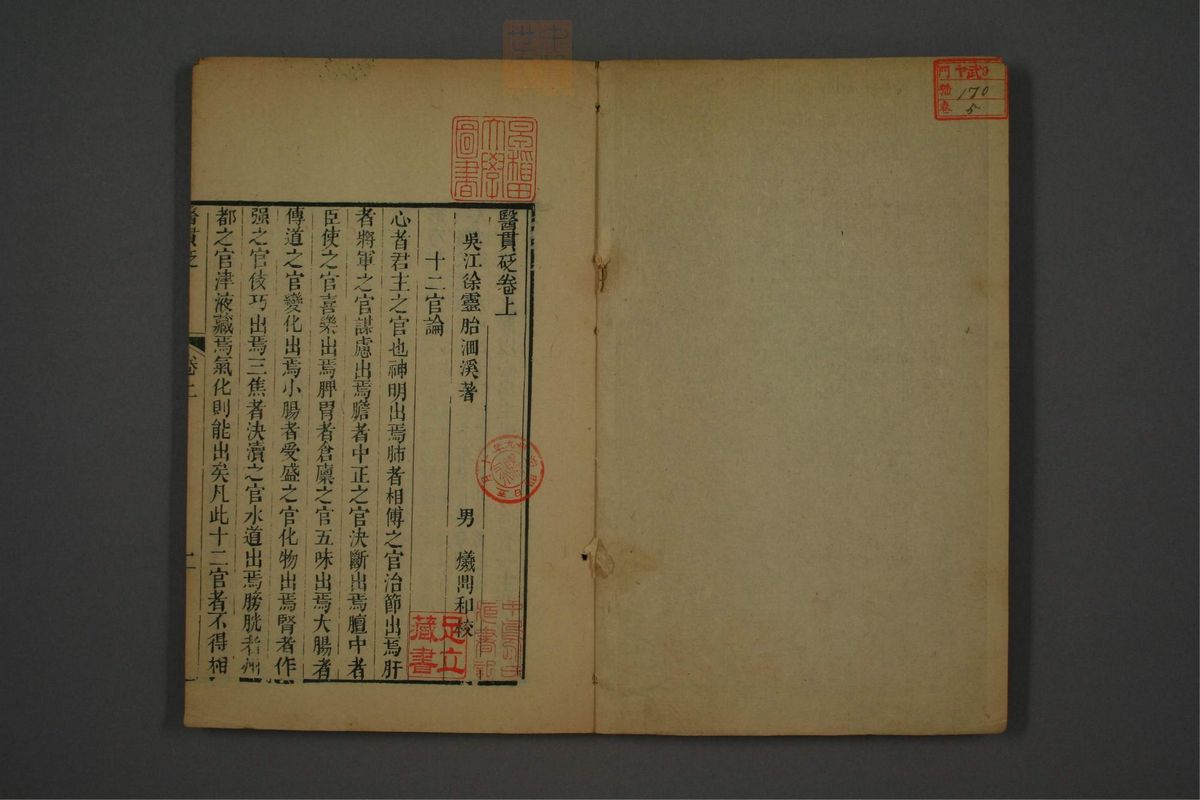 門 ヤ武9
號 170
卷 5
早稲田大學圖書
醫貫砭卷上
吳江徐靈胎洄溪著 男 爔鼎和校
十二官論
心者君主之官也神明出焉肺者相傅之官治節出焉肝
者將軍之官謀慮出焉膽者中正之官決斷出焉膻中者
臣使之官喜樂出焉脾胃者倉廩之官五味出焉大腸者
傳道之官變化出焉小腸者受盛之官化物出焉腎者作
强之官伎巧出焉三焦者決瀆之官水道出焉膀胱者州
都之官津液藏焉氣化則能出矣凡此十二官者不得相
醫貫砭 卷上 一
足立藏書
藏書記